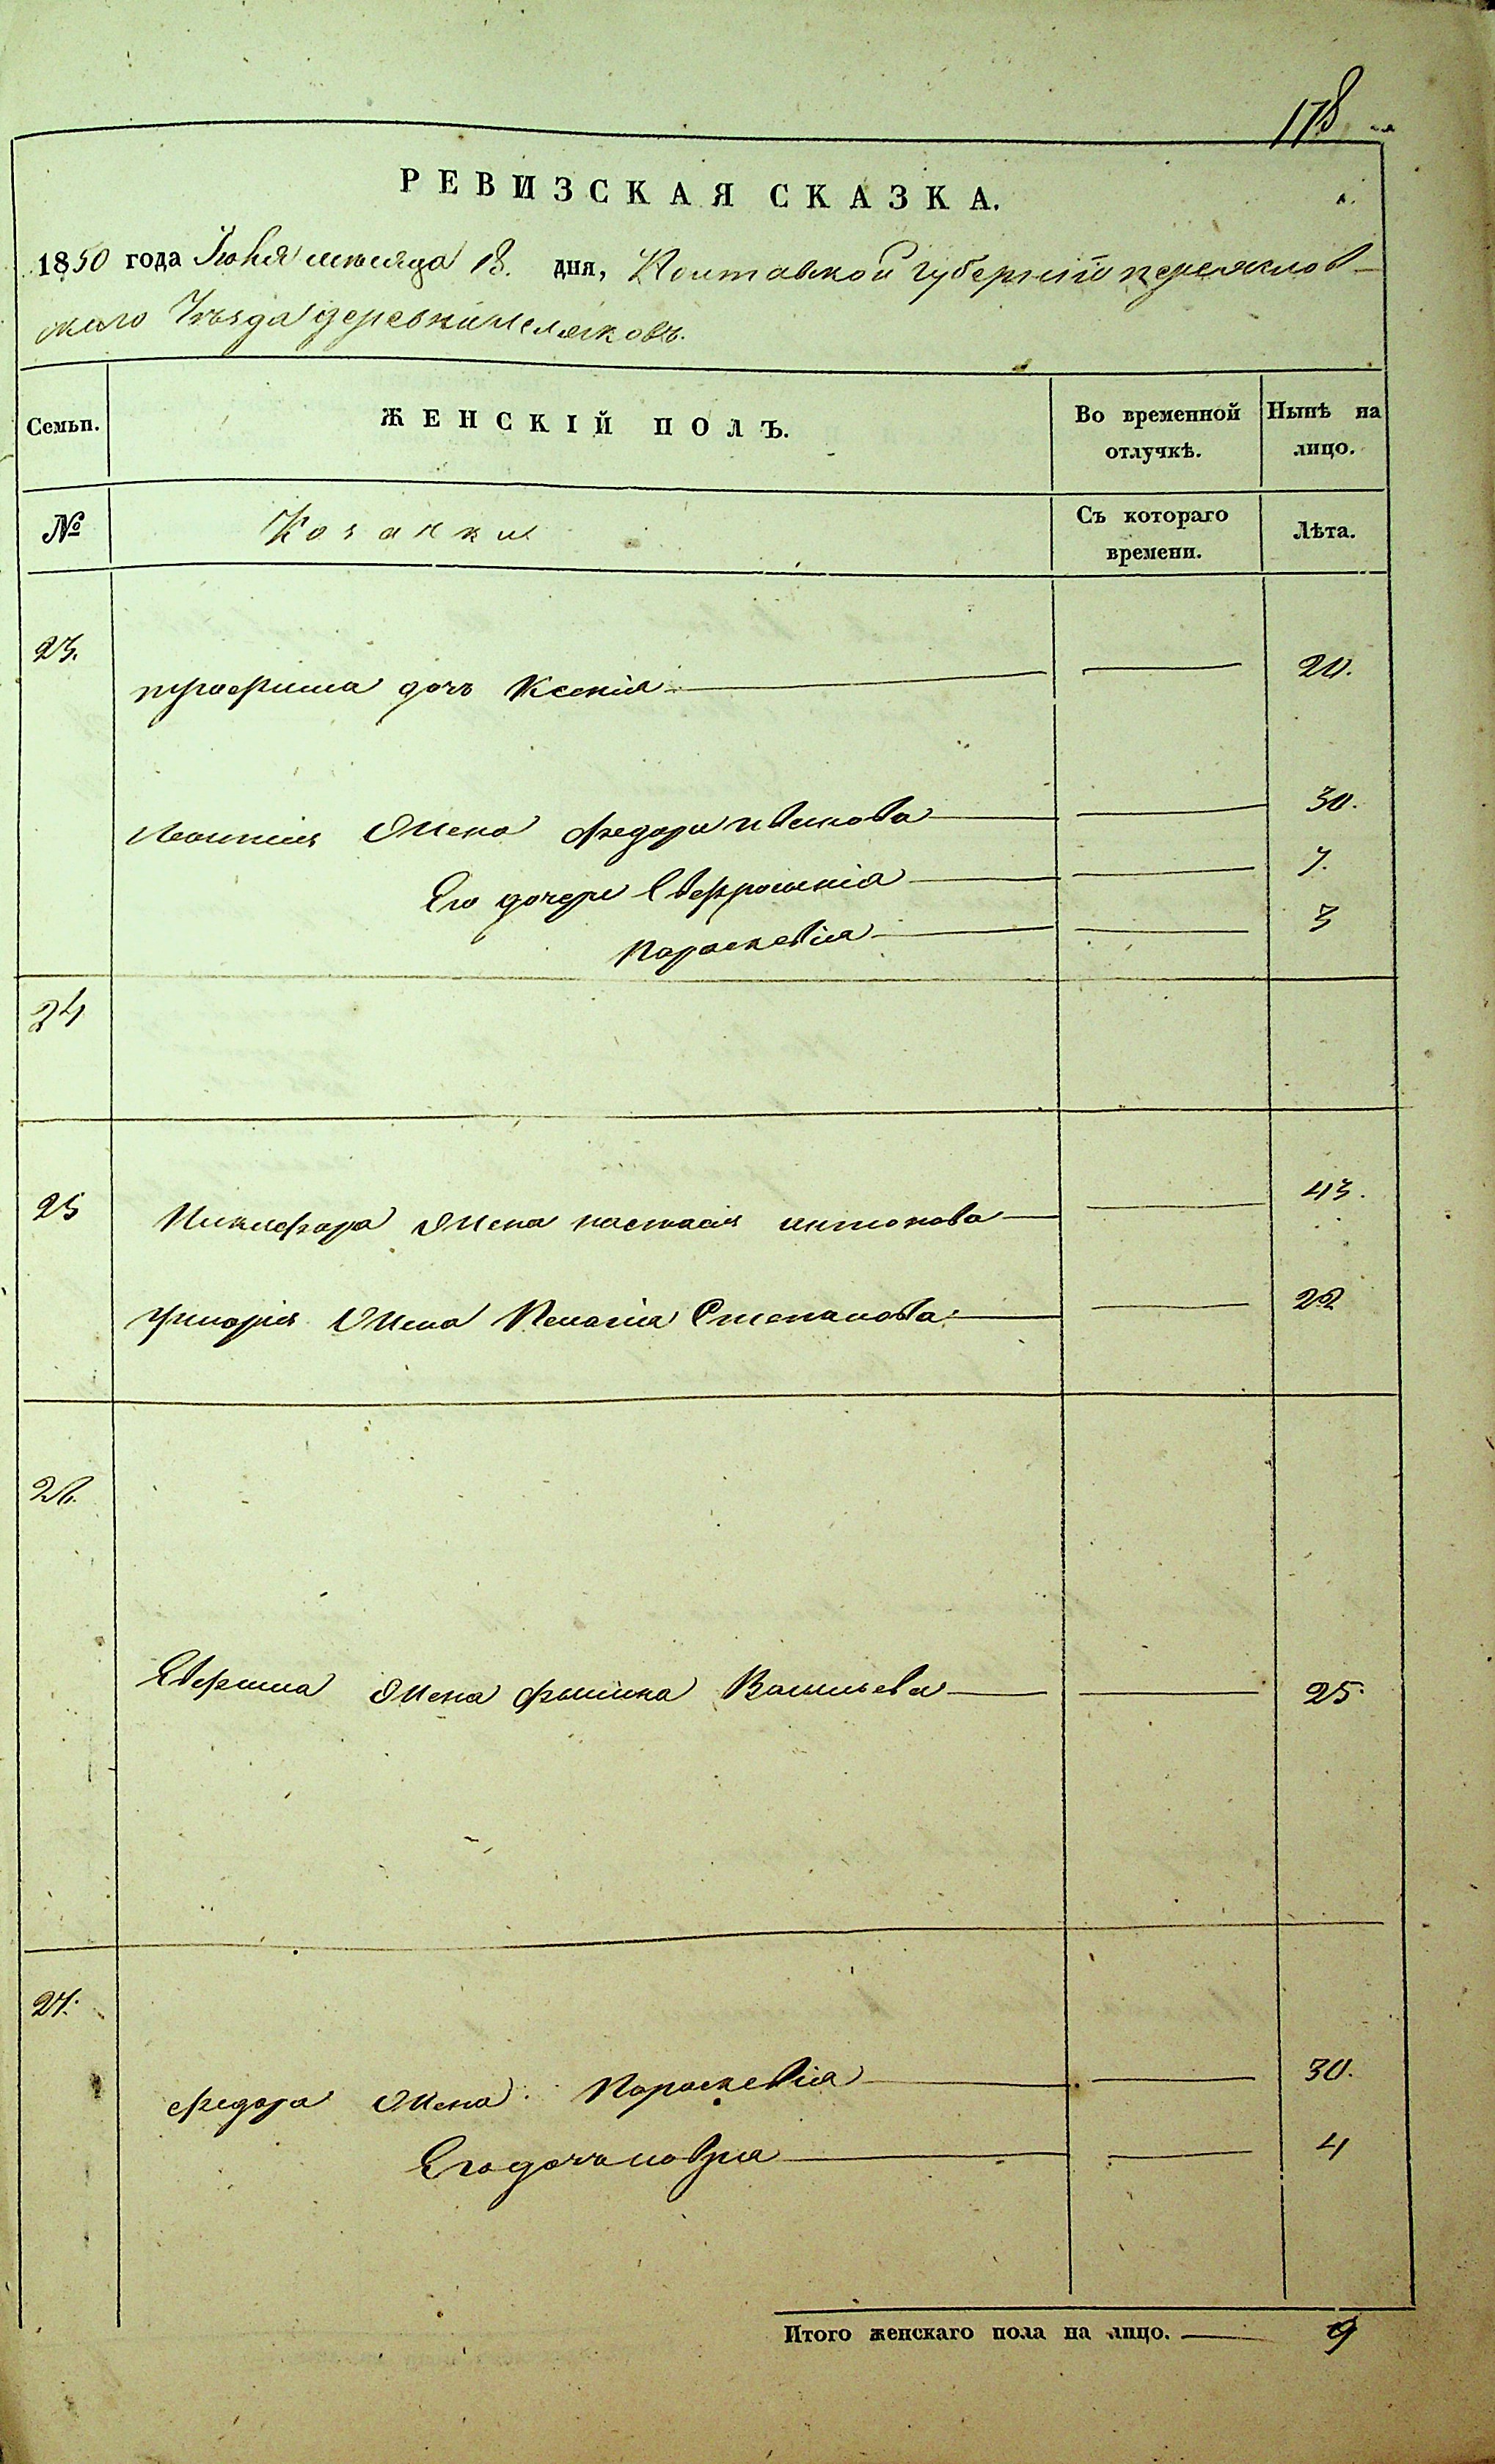 178
РЕВИЗСКАЯ СКАЗКА.
1850 года Іюня месяца 18. дня, Полтавской Губерніи переяслов-
скаго Уезда деревни
Семьи. ЖЕНСКІЙ ПОЛЪ. Во временной отлучкѣ. Нынѣ на лицо.
№ Козачки Съ котораго времени. Лѣта.
23.
трофима дочь Ксенія 20.
Леонтія жена Федора Иванова 30.
Его дочери Евфросинія 7.
Параскевія 3
24
25 Никифора жена настасія антонова 43.
григорія жена Пелагіа Степанова 22
26.
Ефима жена Васильева 25.
27.
Федора жена Параскевіа 30.
Его дочь 4
Итого женскаго пола на лицо. 9